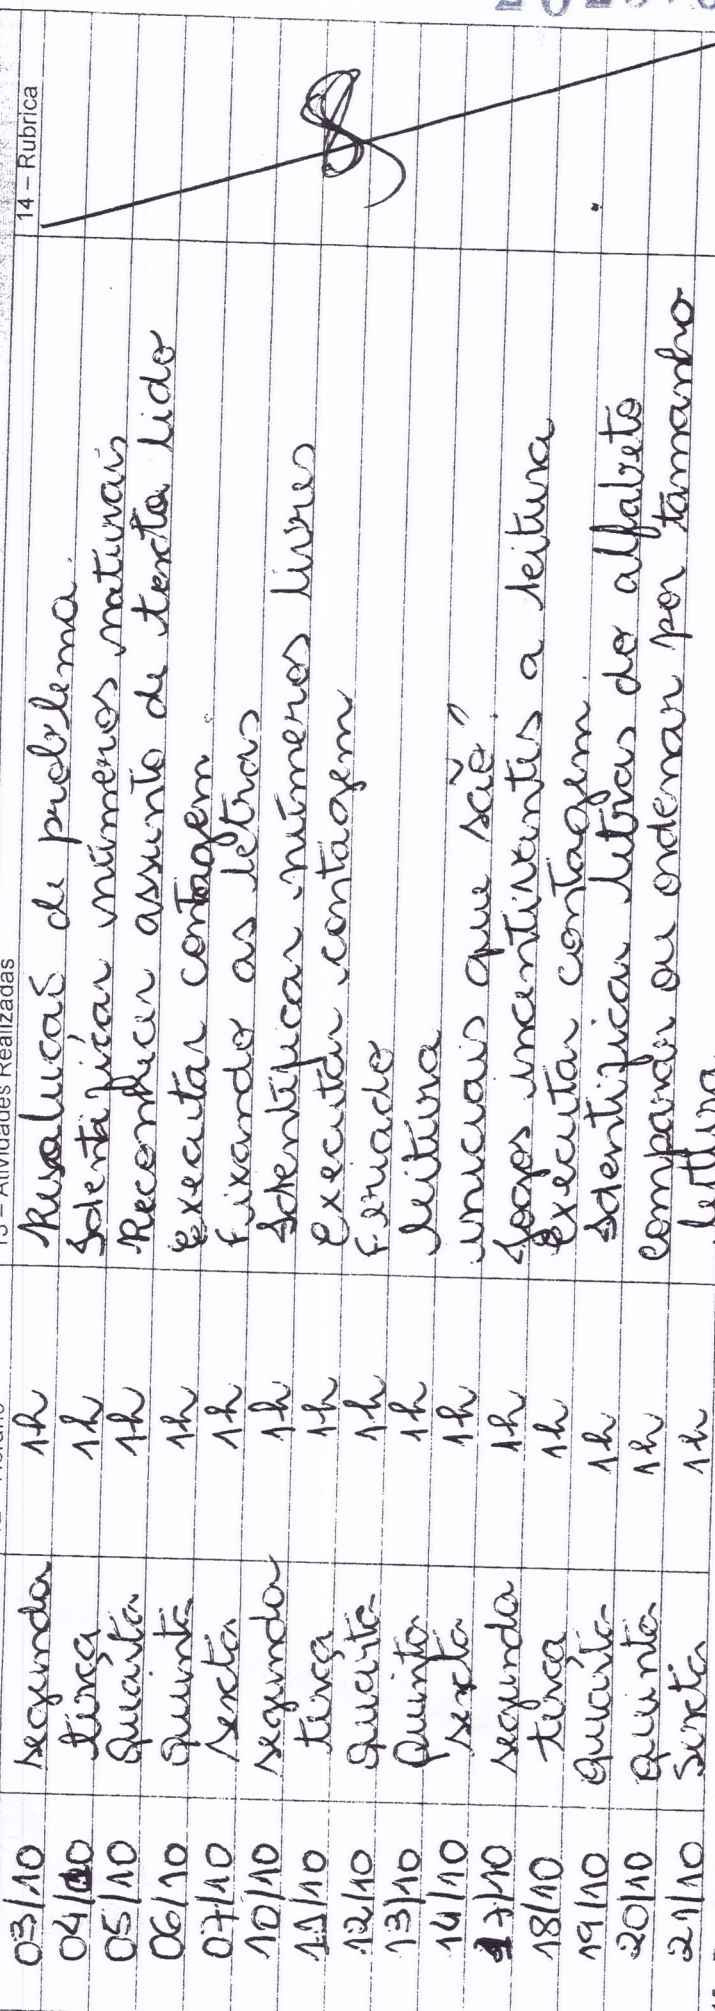 13 – Atividades Realizadas 14 – Rubrica
03/10 segunda 1h Resolucas de problema.
04/10 terça 1h Identificar números naturais
05/10 quarta 1h Reconhecer assunto de texto lido
06/10 quinta 1h Executar contagem.
07/10 sexta 1h Fixando as letras
10/10 segunda 1h Identificar números livres
11/10 terça 1h Executar contagem
12/10 quarta 1h Feriado
13/10 quinta 1h leitura
14/10 sexta 1h iniciais que são"
17/10 segunda 1h Jogos incentivantes a leitura
18/10 terça 1h Executar contagem.
19/10 quarta 1h Identificar letras do alfabeto
20/10 quinta 1h comparar ou ordenar por tamanho
21/10 sexta 1h leitura